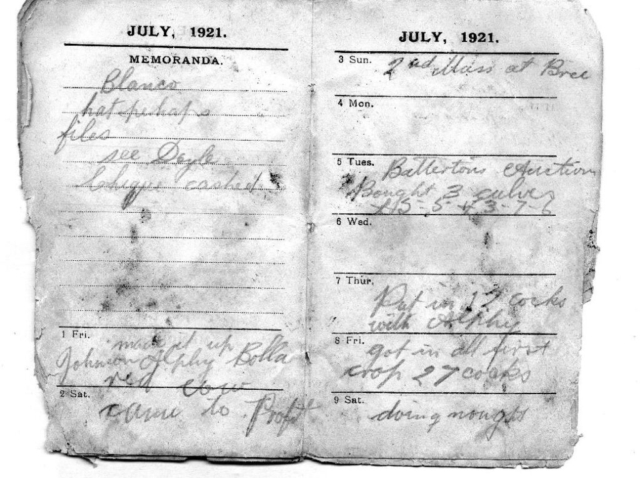 JULY, 1921.
MEMORANDA.
Blanco
hat perhaps
files
see Doyle
Cheque cashed
1 Fri.
made it up
Johnson Alphy Bolla
2 Sat.
red cow
came to Profit
JULY, 1921.
3 Sun.
2nd Mass at Bree
4 Mon.
5 Tues.
Battertons Auction
Bought 3 calves
6 Wed.
7 Thur.
Put in 17 cocks
with Alphy
8 Fri.
got in all first
crop 27 cocks
9 Sat.
doing nought